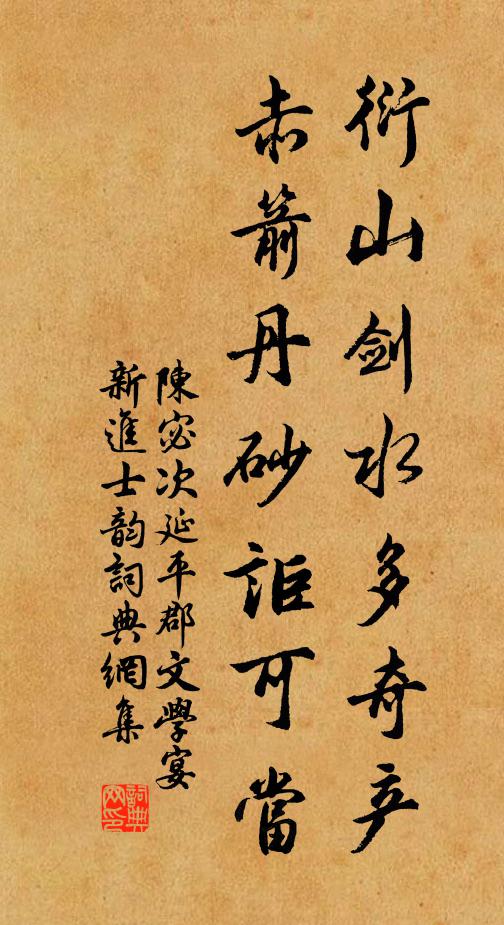 衍山剑水多奇产
赤箭丹砂詎可當
陳宓次延平郡文學宴
新進士韵詞典網集
詞典
网印